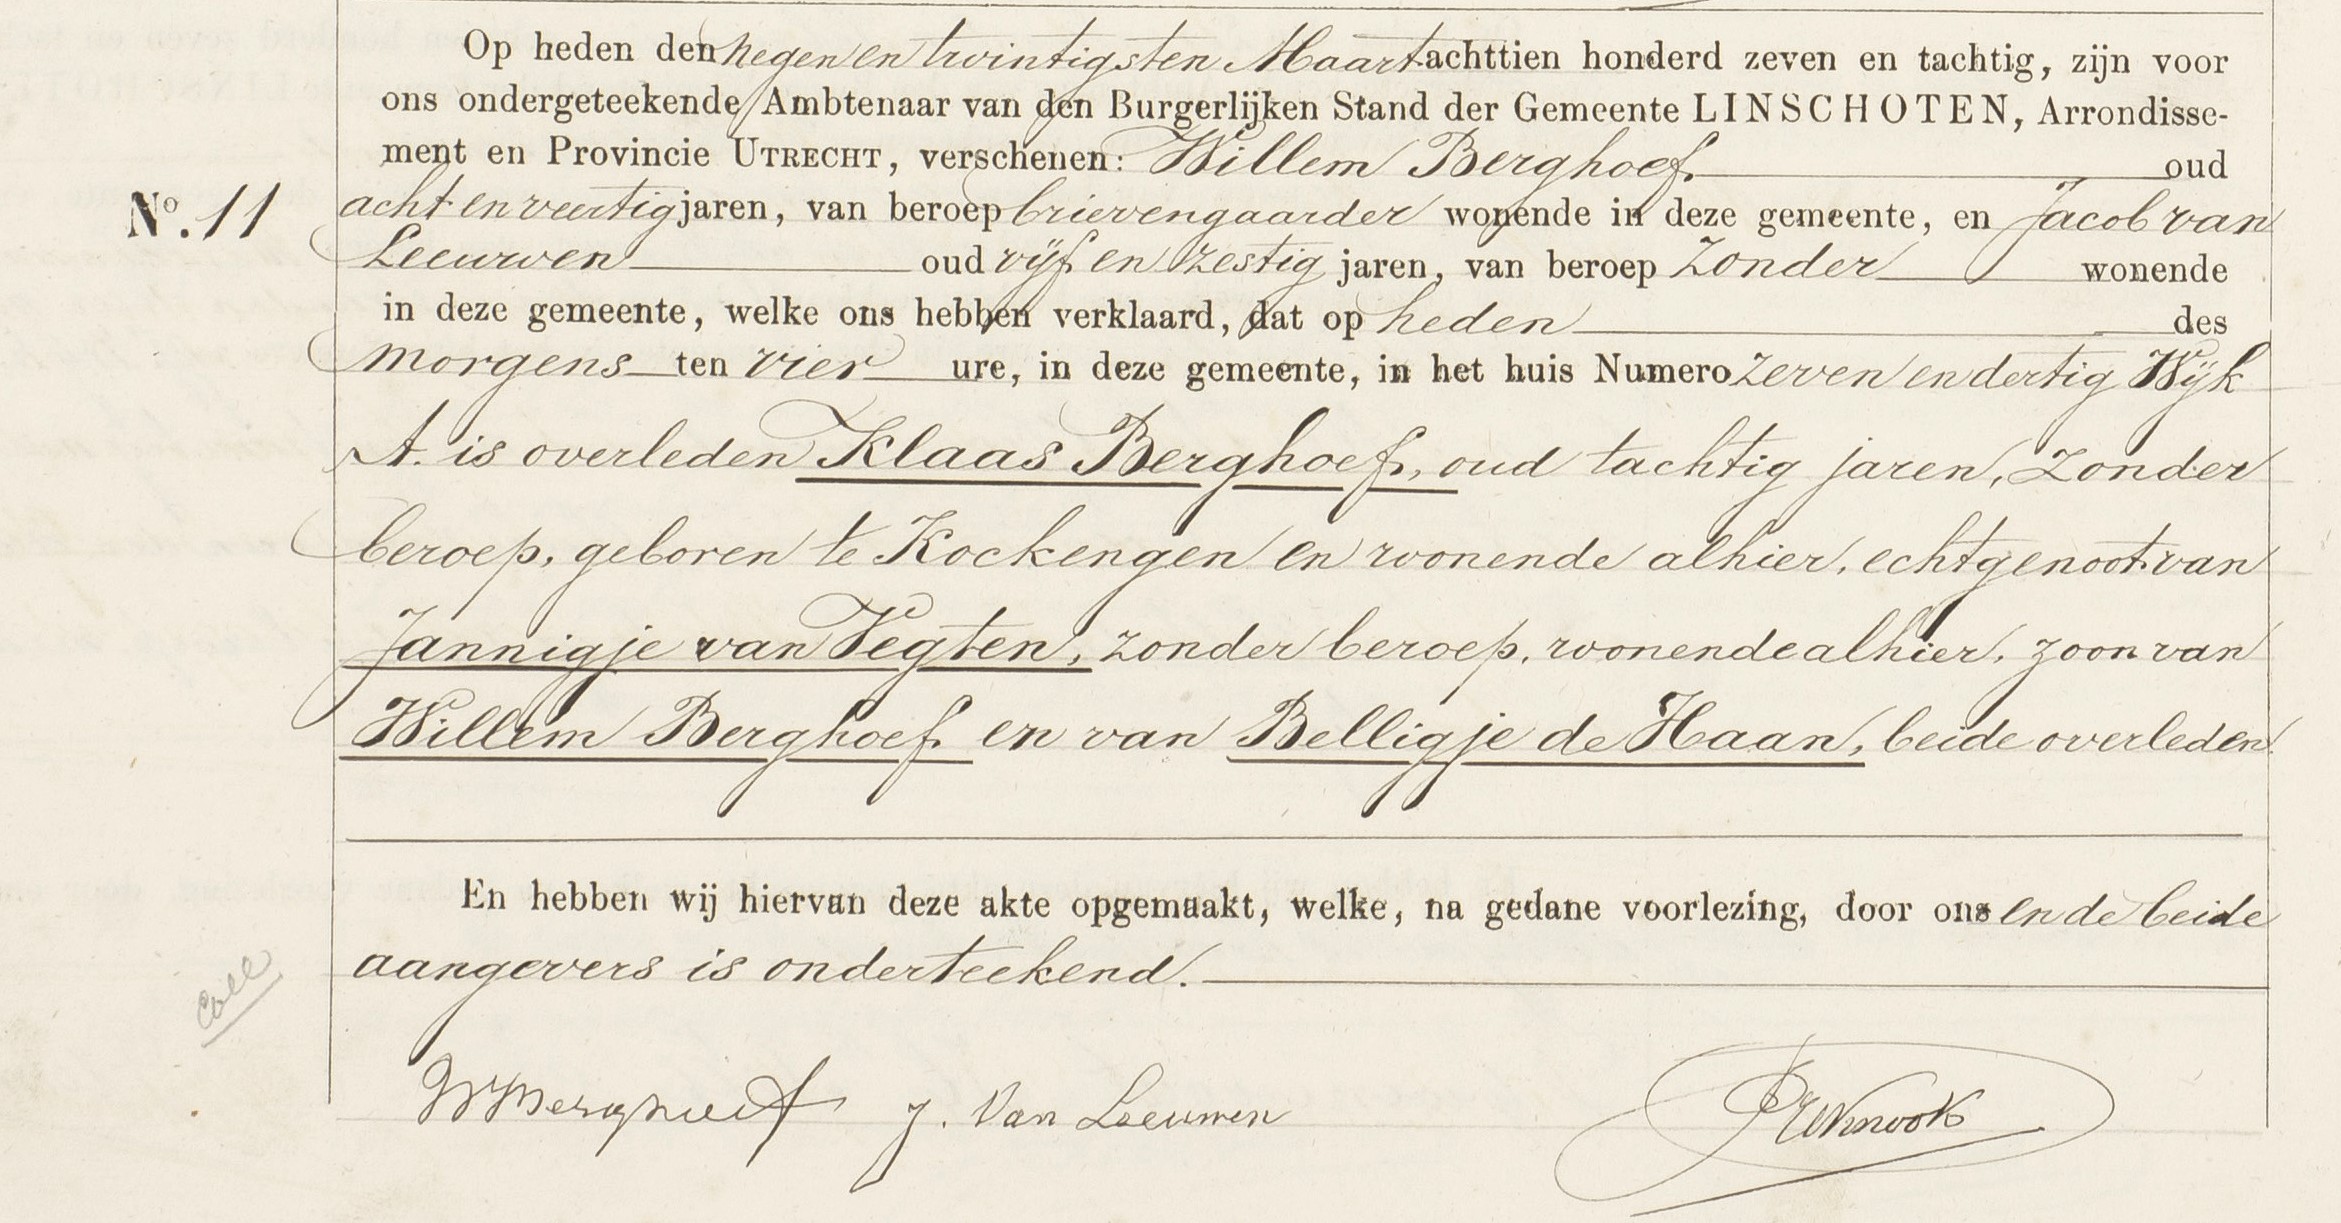 Op heden den negen en twintigsten Maart achttien honderd zeven en tachtig, zijn voor
ons ondergeteekende Ambtenaar van den Burgerlijken Stand der Gemeente LINSCHOTEN, Arrondisse-
ment en Provincie UTRECHT, verschenen: Willem Berghoef oud
No. 11
acht en veertig jaren, van beroep brievengaarder wonende in deze gemeente, en Jacob van
Leeuwen oud vijf en zestig jaren, van beroep zonder wonende
in deze gemeente, welke ons hebben verklaard, dat op heden des
morgens ten vier ure, in deze gemeente, in het huis Numero zeven en dertig Wijk
A. is overleden Klaas Berghoef, oud tachtig jaren, zonder
beroep, geboren te Kockengen en wonende alhier, echtgenoot van
Jannigje van Vegten, zonder beroep, wonende alhier, zoon van
Willem Berghoef en van Belligje de Haan, beide overleden.
En hebben wij hiervan deze akte opgemaakt, welke, na gedane voorlezing, door ons en de beide
aangevers is onderteekend.
Coll
W Berghoef J. van Leeuwen